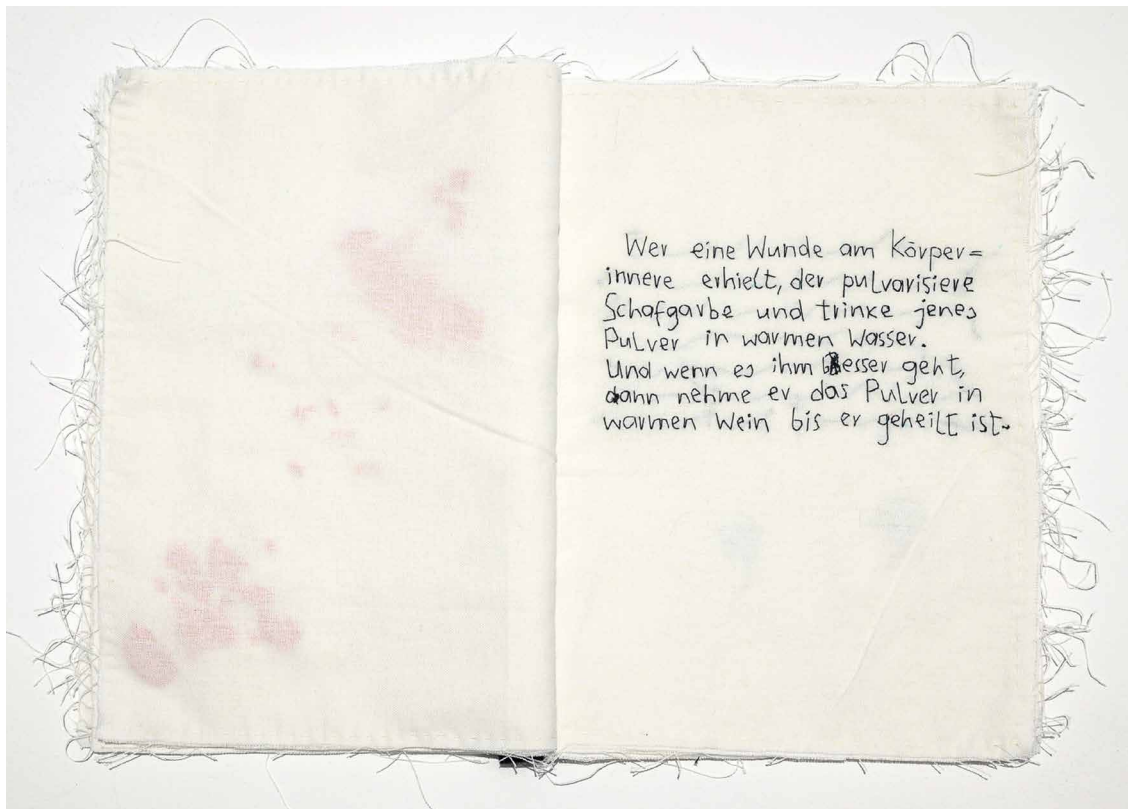 Wer eine Wunde am Körper=
innere erhielt, der pulvarisiere
Schafgarbe und trinke jenes
Pulver in warmen Wasser.
Und wenn es ihm Besser geht,
dann nehme er das Pulver in
warmen Wein bis er geheilt ist.